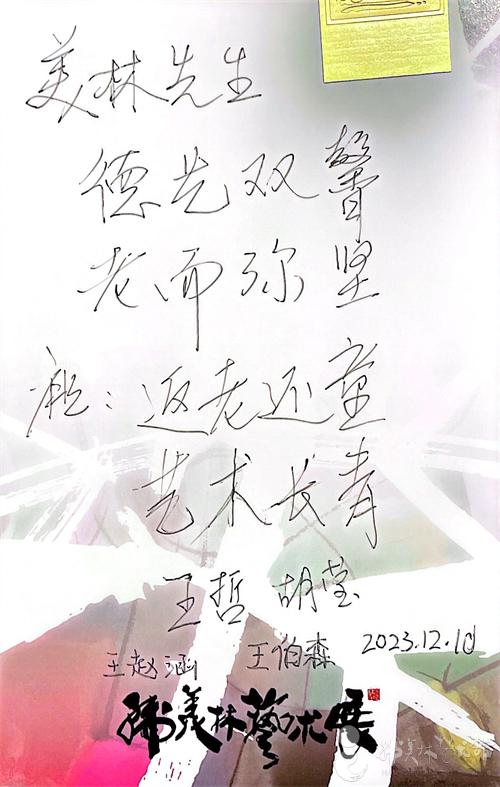 美林先生
德艺双馨
老而弥坚
愿：返老还童
艺术长青
王哲 胡莹
王赵涵 王伯森 2023.12.10
韩美林藝术展